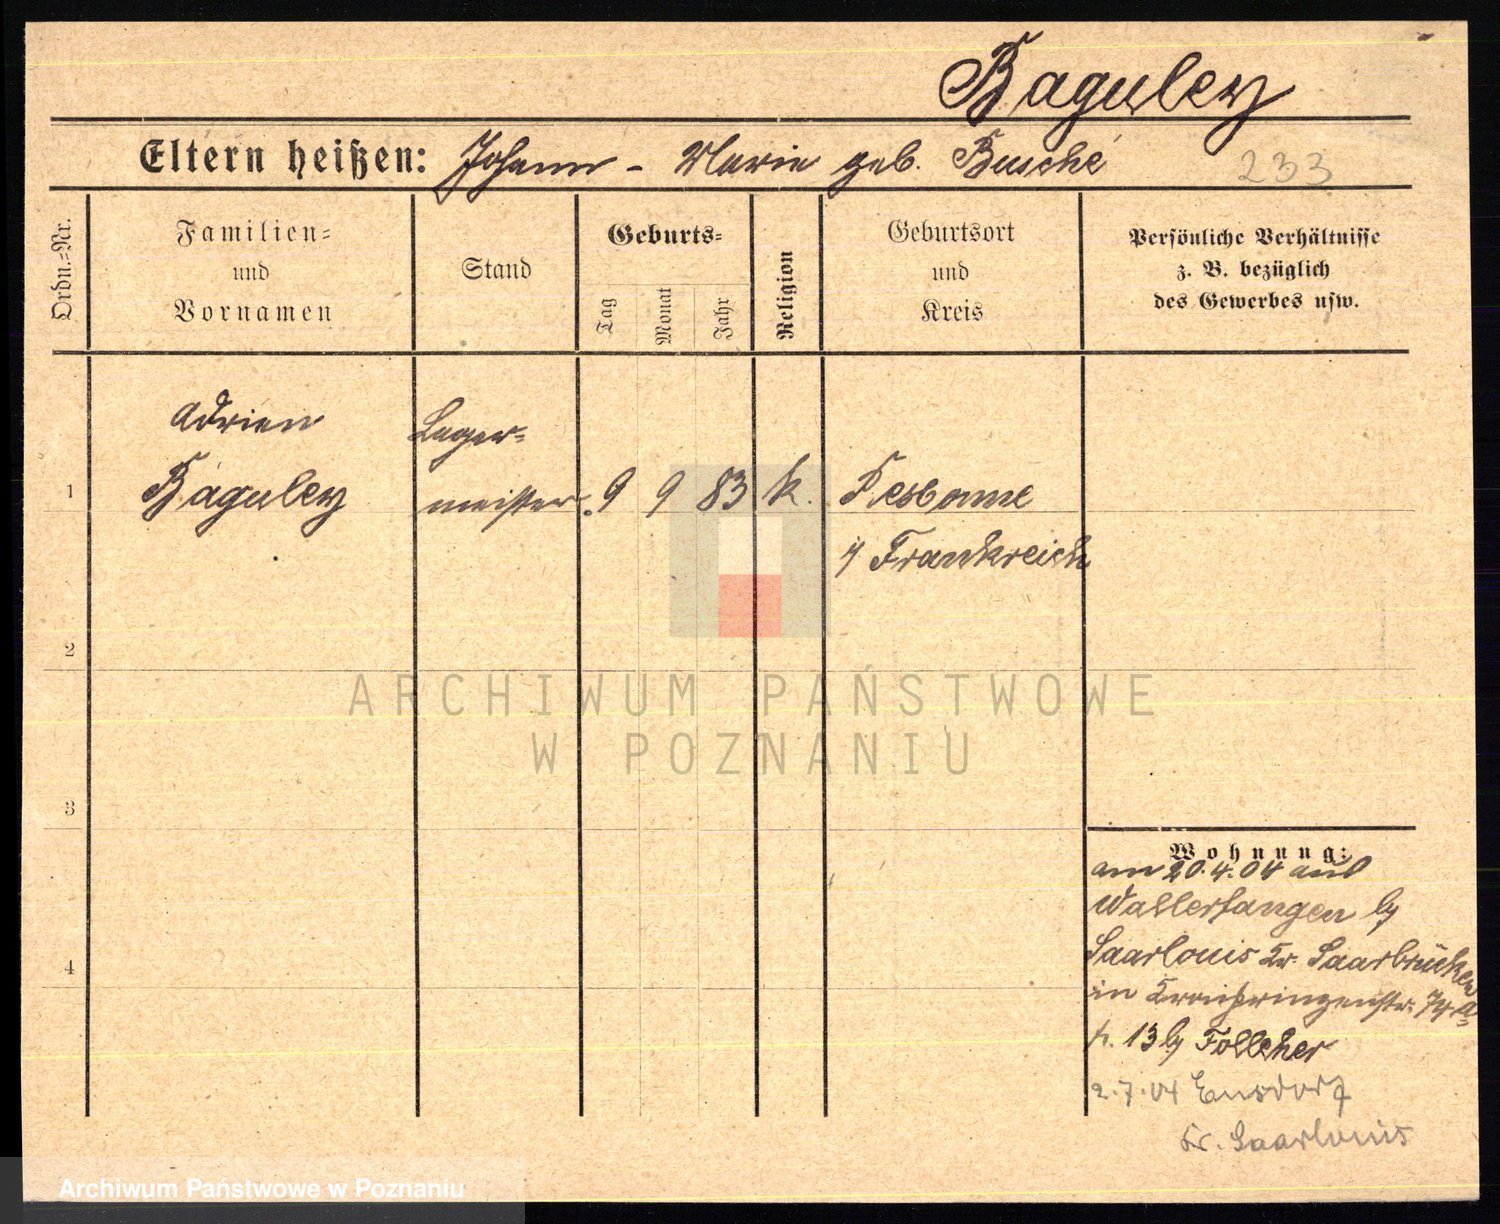 Baguley
Eltern heißen: Johann - Marie geb. Busché
233
Ordn.-Nr.
Familien-
und
Vornamen
Stand
Geburts-
Tag
Monat
Jahr
Religion
Geburtsort
und
Kreis
Persönliche Verhältnisse
z. B. bezüglich
des Gewerbes usw.
Adrien
Baguley
Lager-
meister
1
9 9 83 k.
Frankreich
2
3
4
Wohnung:
am 20.4.04 aus
Wallerfangen b/
Saarlouis Kr. Saarbrücken
in Kronprinzenstr. 74a
p. 13 b/ Follcher
2.7.04 Ensdorf
Kr. Saarlouis
ARCHIWUM PAŃSTWOWE
W POZNANIU
Archiwum Państwowe w Poznaniu